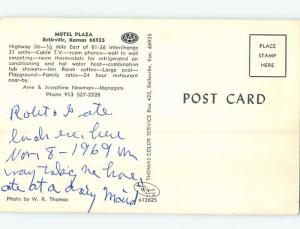 MOTEL PLAZA
Belleville, Kansas 66935
Highway 36—½ Mile East of 81-36 Interchange
31 units—Cable T.V.—room phones—wall to wall
carpeting—room thermostats for refrigerated air
conditioning and hot water heat—combination
tub showers—Inn Room coffee—Large pool—
Playground—Family rates—24 hour restaurant
near-by.
Arve and Josephine Newman—Managers
Phone 913 527-2228
& I ate
here
Nov 8-1969 on
way taking me home
ate at a Dairy Maid
Photo by W. R. Thomas
THOMAS COLOR SERVICE Box 423, Belleville, Kans. 66935
612625
POST CARD
PLACE
STAMP
HERE
AAA